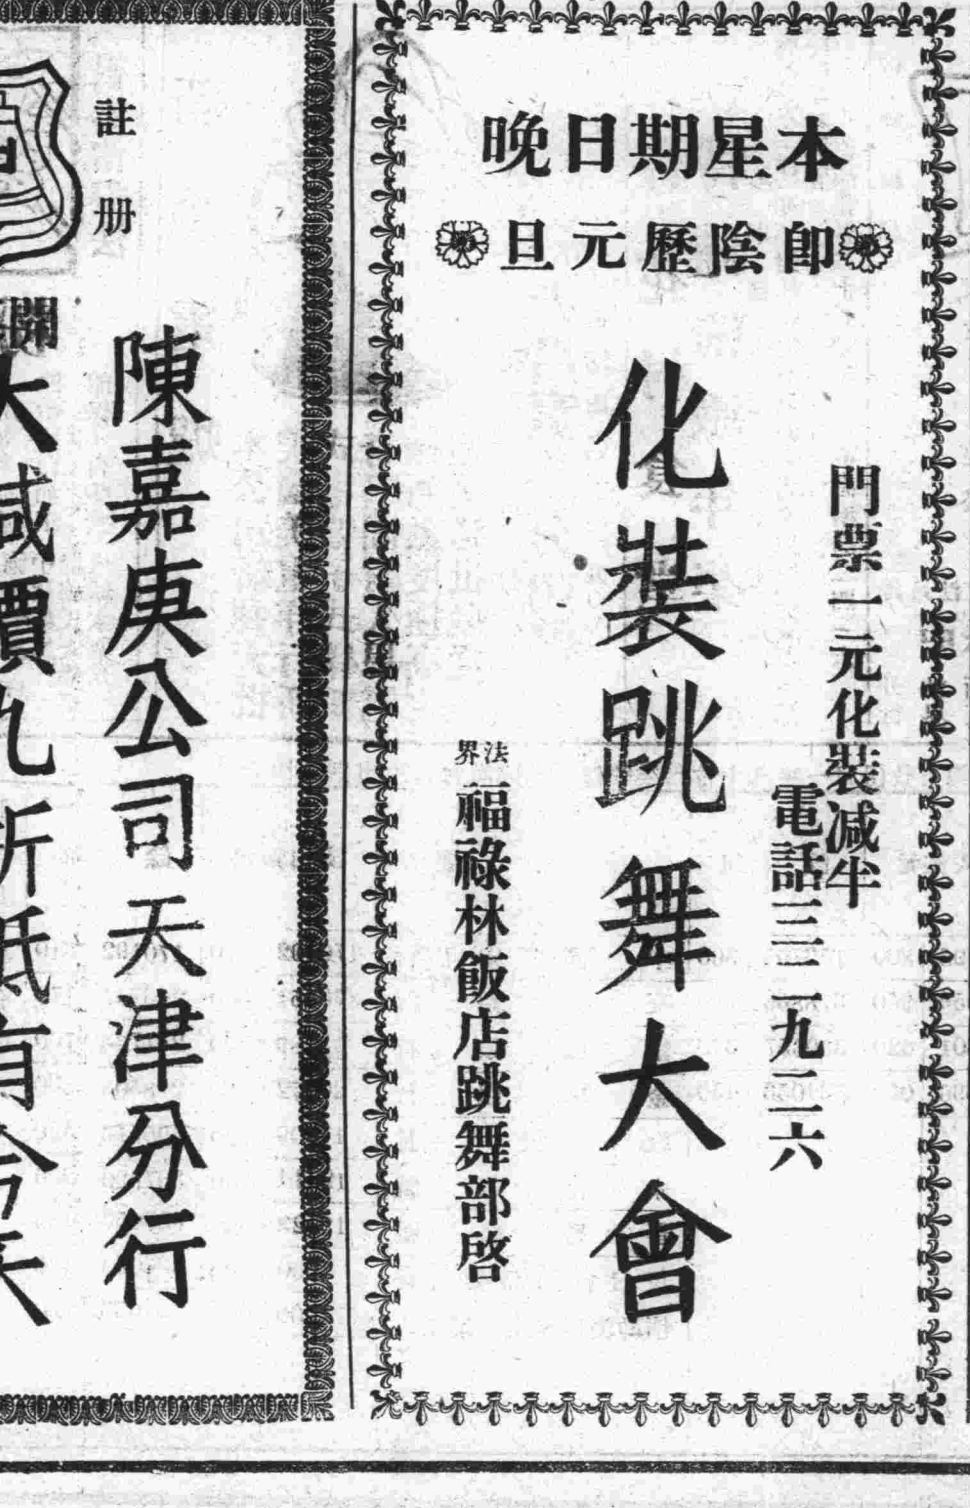 本星期日晚
即陰歷元旦
門票一元化裝減半
電話三二九二六
化裝跳舞大會
法界
福祿林飯店跳舞部啓
註册
陳嘉庚公司天津分行
開
大減價九折祇有今天